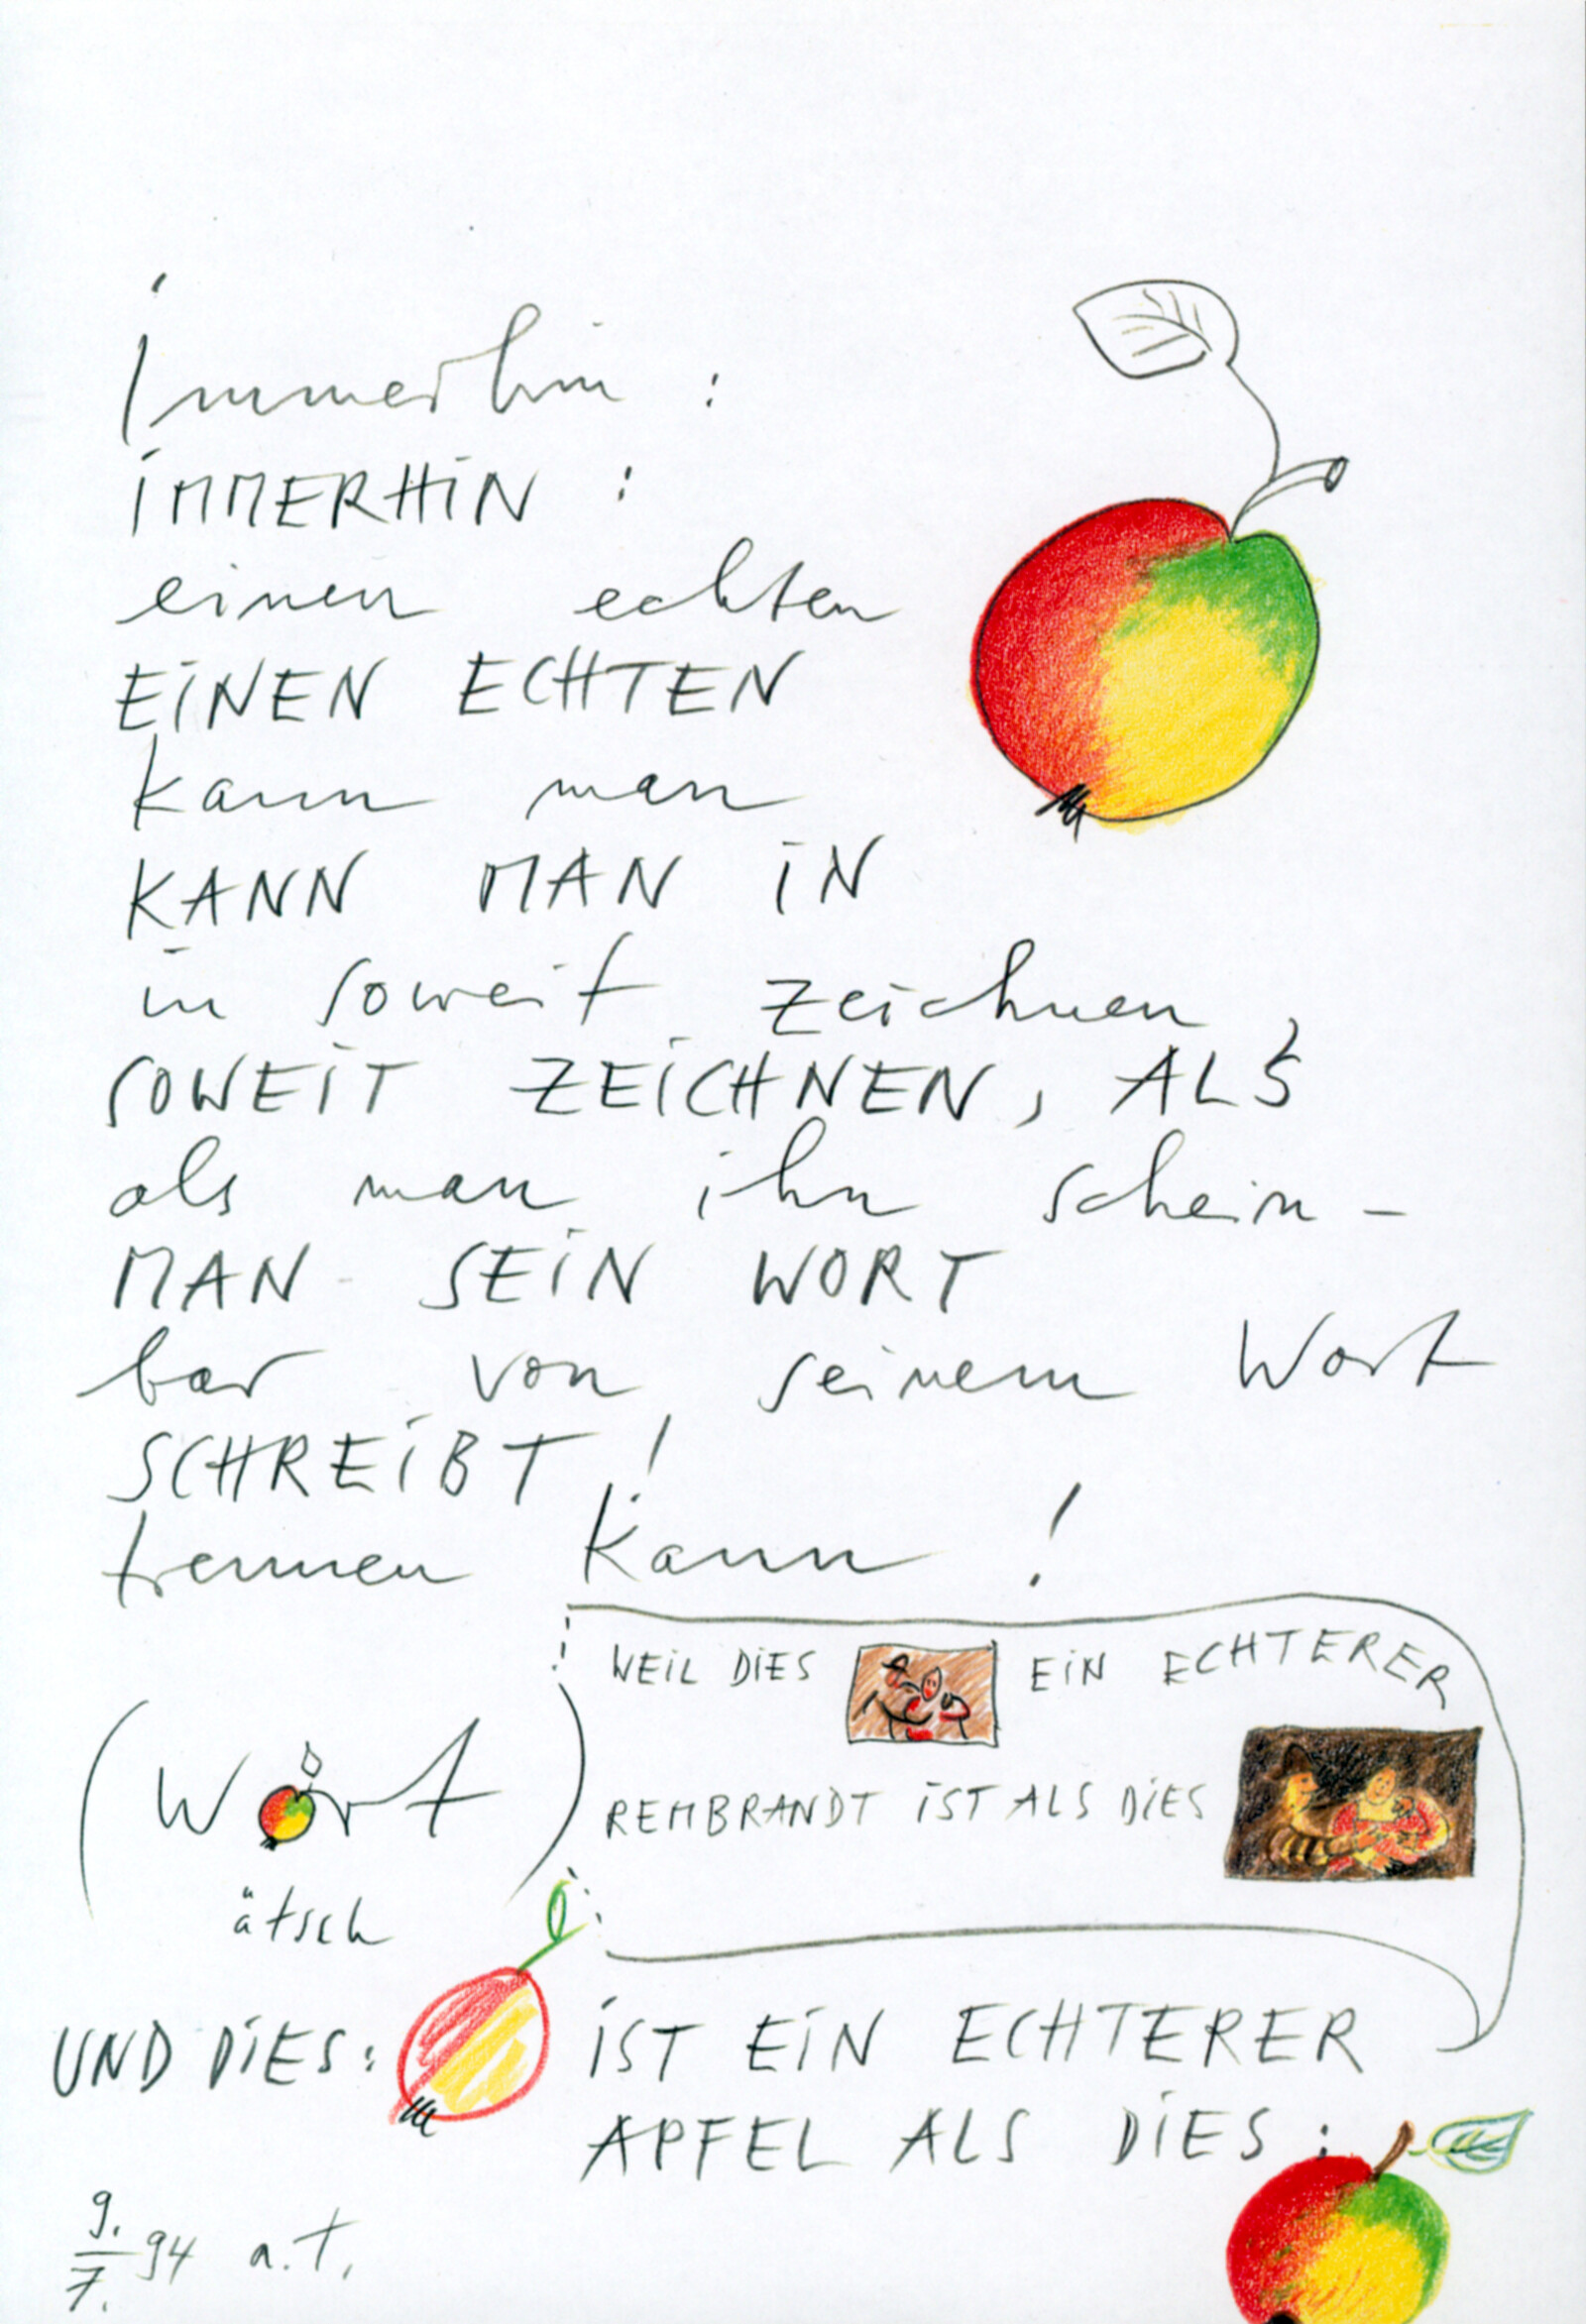 Immerhin :
iMMERHiN :
einen echten
EiNEN ECHTEN
kann man
KANN MAN iN
in soweit zeichnen,
SOWEiT ZEiCHNEN, ALS
als man ihn schein-
MAN SEiN WORT
bar von seinem Wort
SCHREiBT!
trennen kann!
WEiL DiES EiN ECHTERER
(Wort)
REMBRANDT iST ALS DiES
ätsch
UND DiES: iST EiN ECHTERER
APFEL ALS DiES:
9./7. 94 a.t.